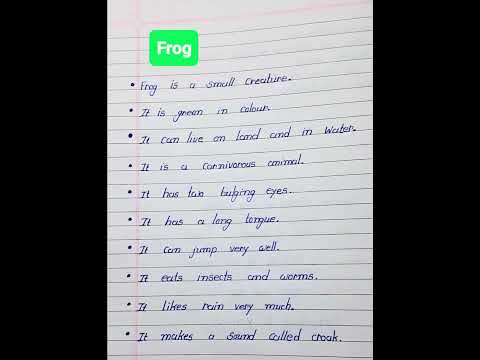 Frog
• Frog is a small creature.
• It is green in colour.
• It can live on land and in Water.
• It is a carnivorous animal.
• It has two bulging eyes.
• It has a long tongue.
• It can jump very well.
• It eats insects and worms.
• It likes rain very much.
• It makes a sound called croak.